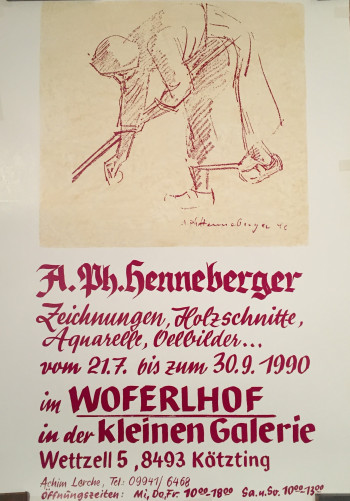 A. Ph. Henneberger
A. Ph. Henneberger
Zeichnungen, Holzschnitte,
Aquarelle, Oelbilder...
vom 21.7. bis zum 30.9. 1990
im WOFERLHOF
in der kleinen Galerie
Wettzell 5, 8493 Kötzting
Achim Lerche, Tel: 09941/6468
Öffnungszeiten: Mi, Do, Fr. 10⁰⁰-18⁰⁰ Sa. u. So. 10⁰⁰-13⁰⁰